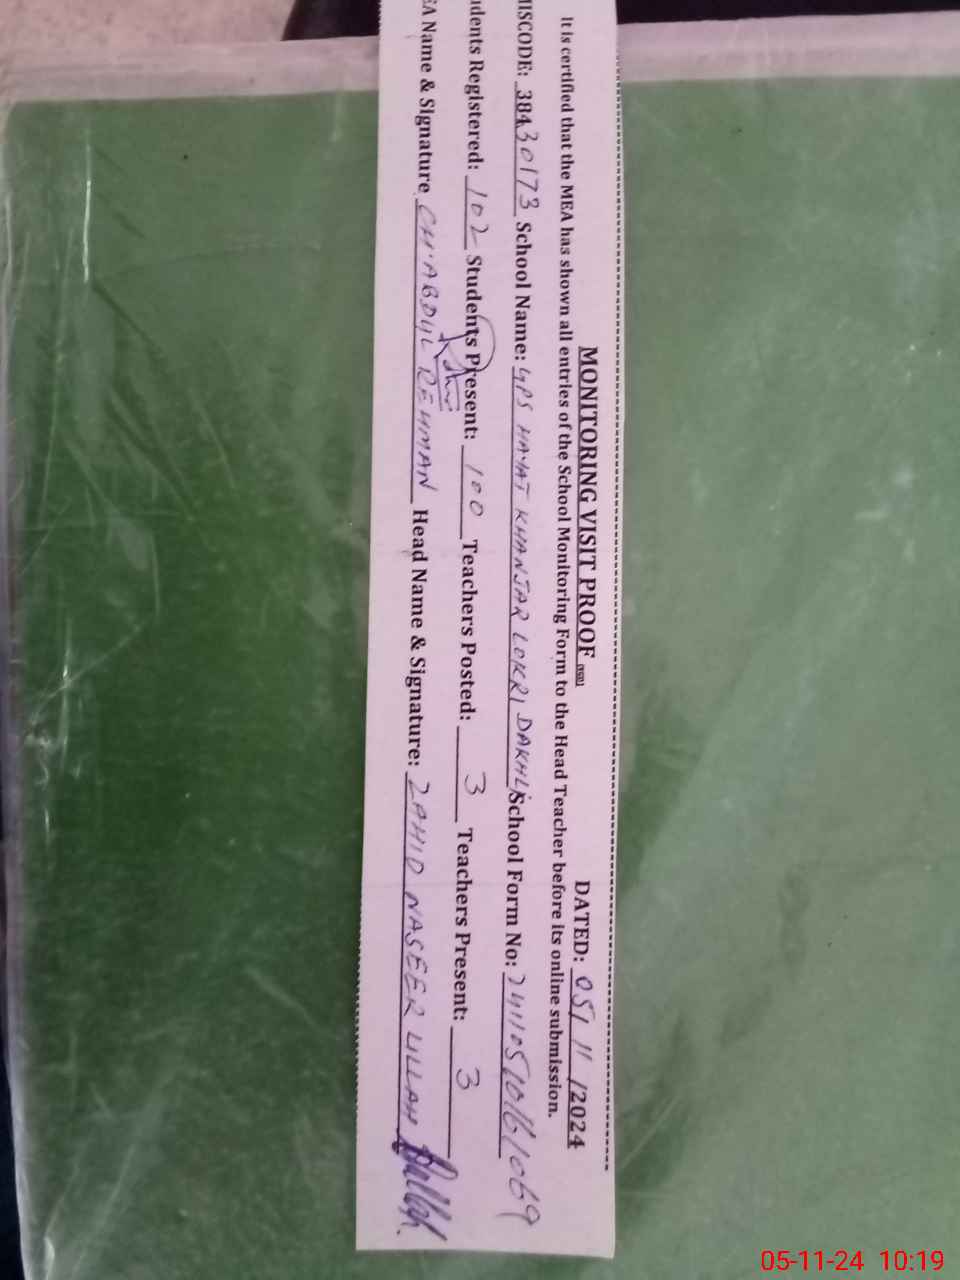 MONITORING VISIT PROOF DATED: 05/11/2024
It is certified that the MEA has shown all entries of the School Monitoring Form to the Head Teacher before its online submission.
MISCODE: 38430173 School Name: GPS HAYAT KHANJAR LOKRI DAKHLI School Form No:
dents Registered: 102 Students Present: 100 Teachers Posted: 3 Teachers Present: 3
EA Name & Signature CH. ABDUL REHMAN Head Name & Signature: ZAHID NASEER ULLAH
05-11-24 10:19